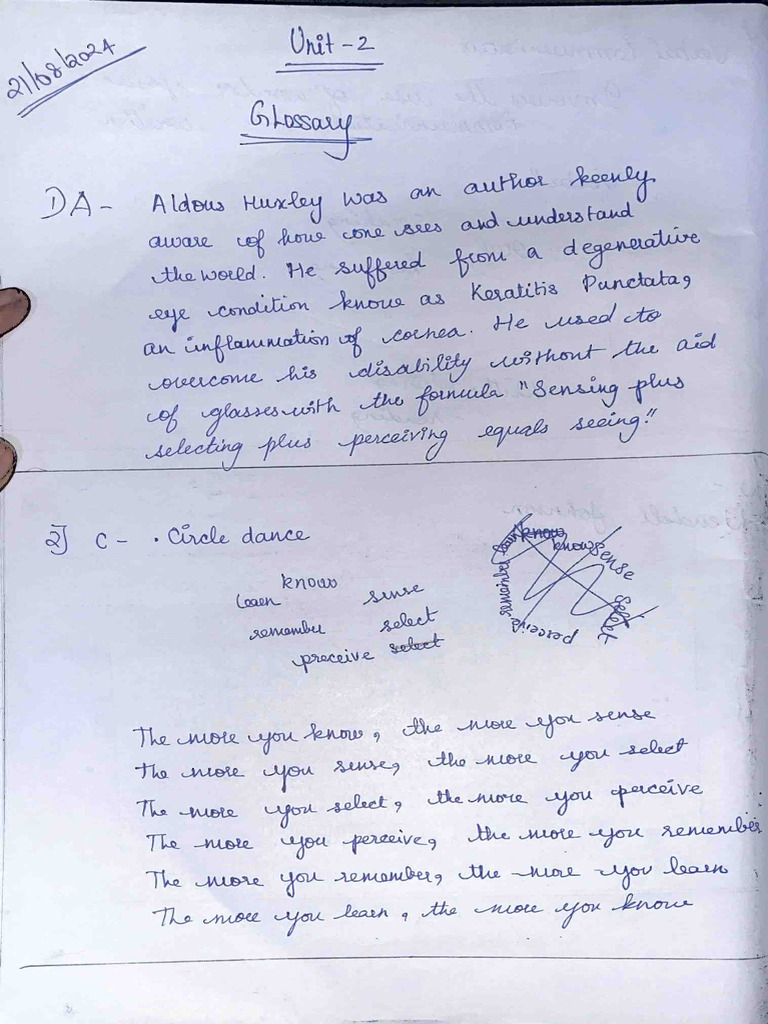 21/08/2024
Unit - 2
Glossary
DA- Aldous Huxley was an author keenly
aware of how one sees and understand
the world. He suffered from a degenerative
eye condition know as Keratitis Punctata,
an inflammation of cornea. He used to
overcome his disability without the aid
of glasses with the formula "Sensing plus
selecting plus perceiving equals seeing."
2] C - . Circle dance
know
learn sense
remember select
preceive select
know
know
sense
select
perceive
remember
learn
The more you know, the more you sense
The more you sense, the more you select
The more you select, the more you perceive
The more you perceive, the more you remember
The more you remember, the more you learn
The more you learn, the more you know